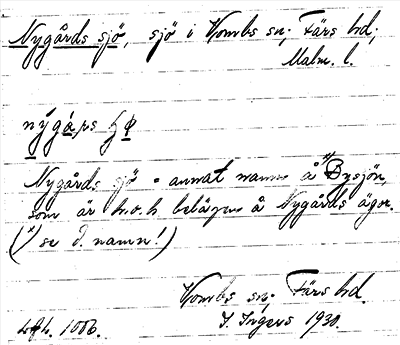 Nygårds sjö, sjö i Vombs sn; Färs hd;
Malm. l.
Nygårds sjö = annat namn å x) Bysjön,
som är m.o.h belägen å Nygårds ägor.
(x) se d. namn!)
Vombs sn; Färs hd.
I. Ingers 1930.